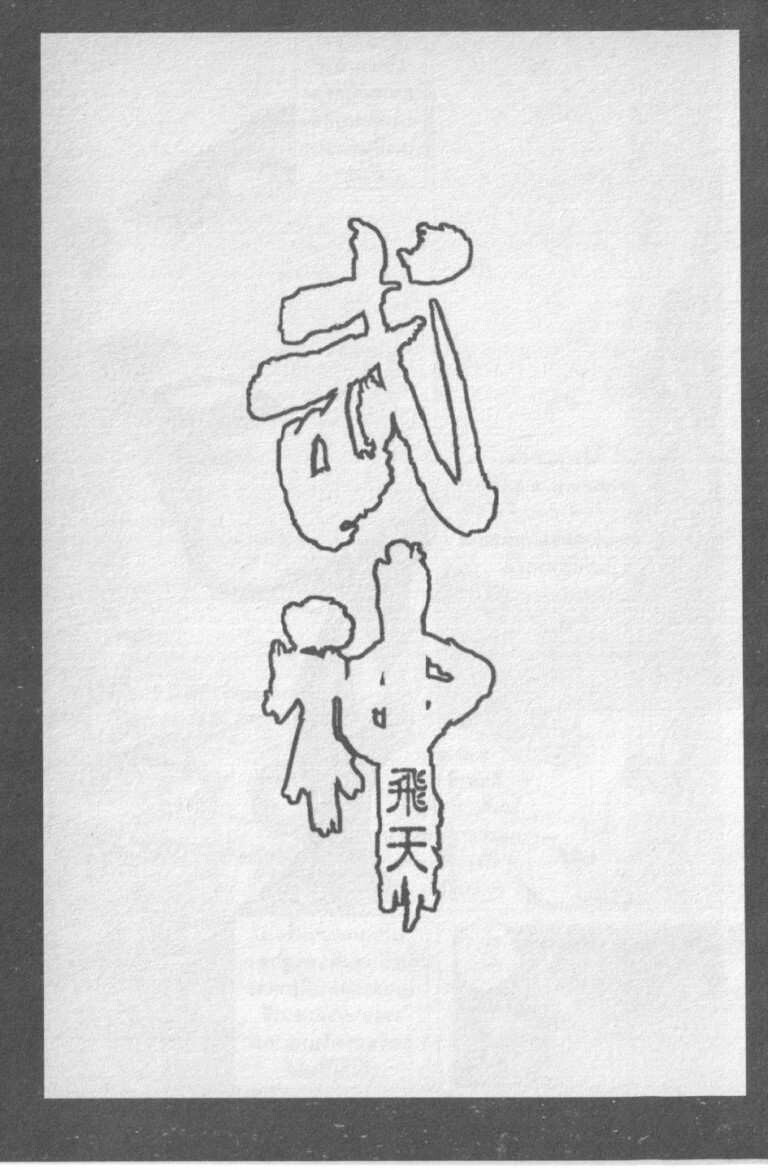 武神
飛天